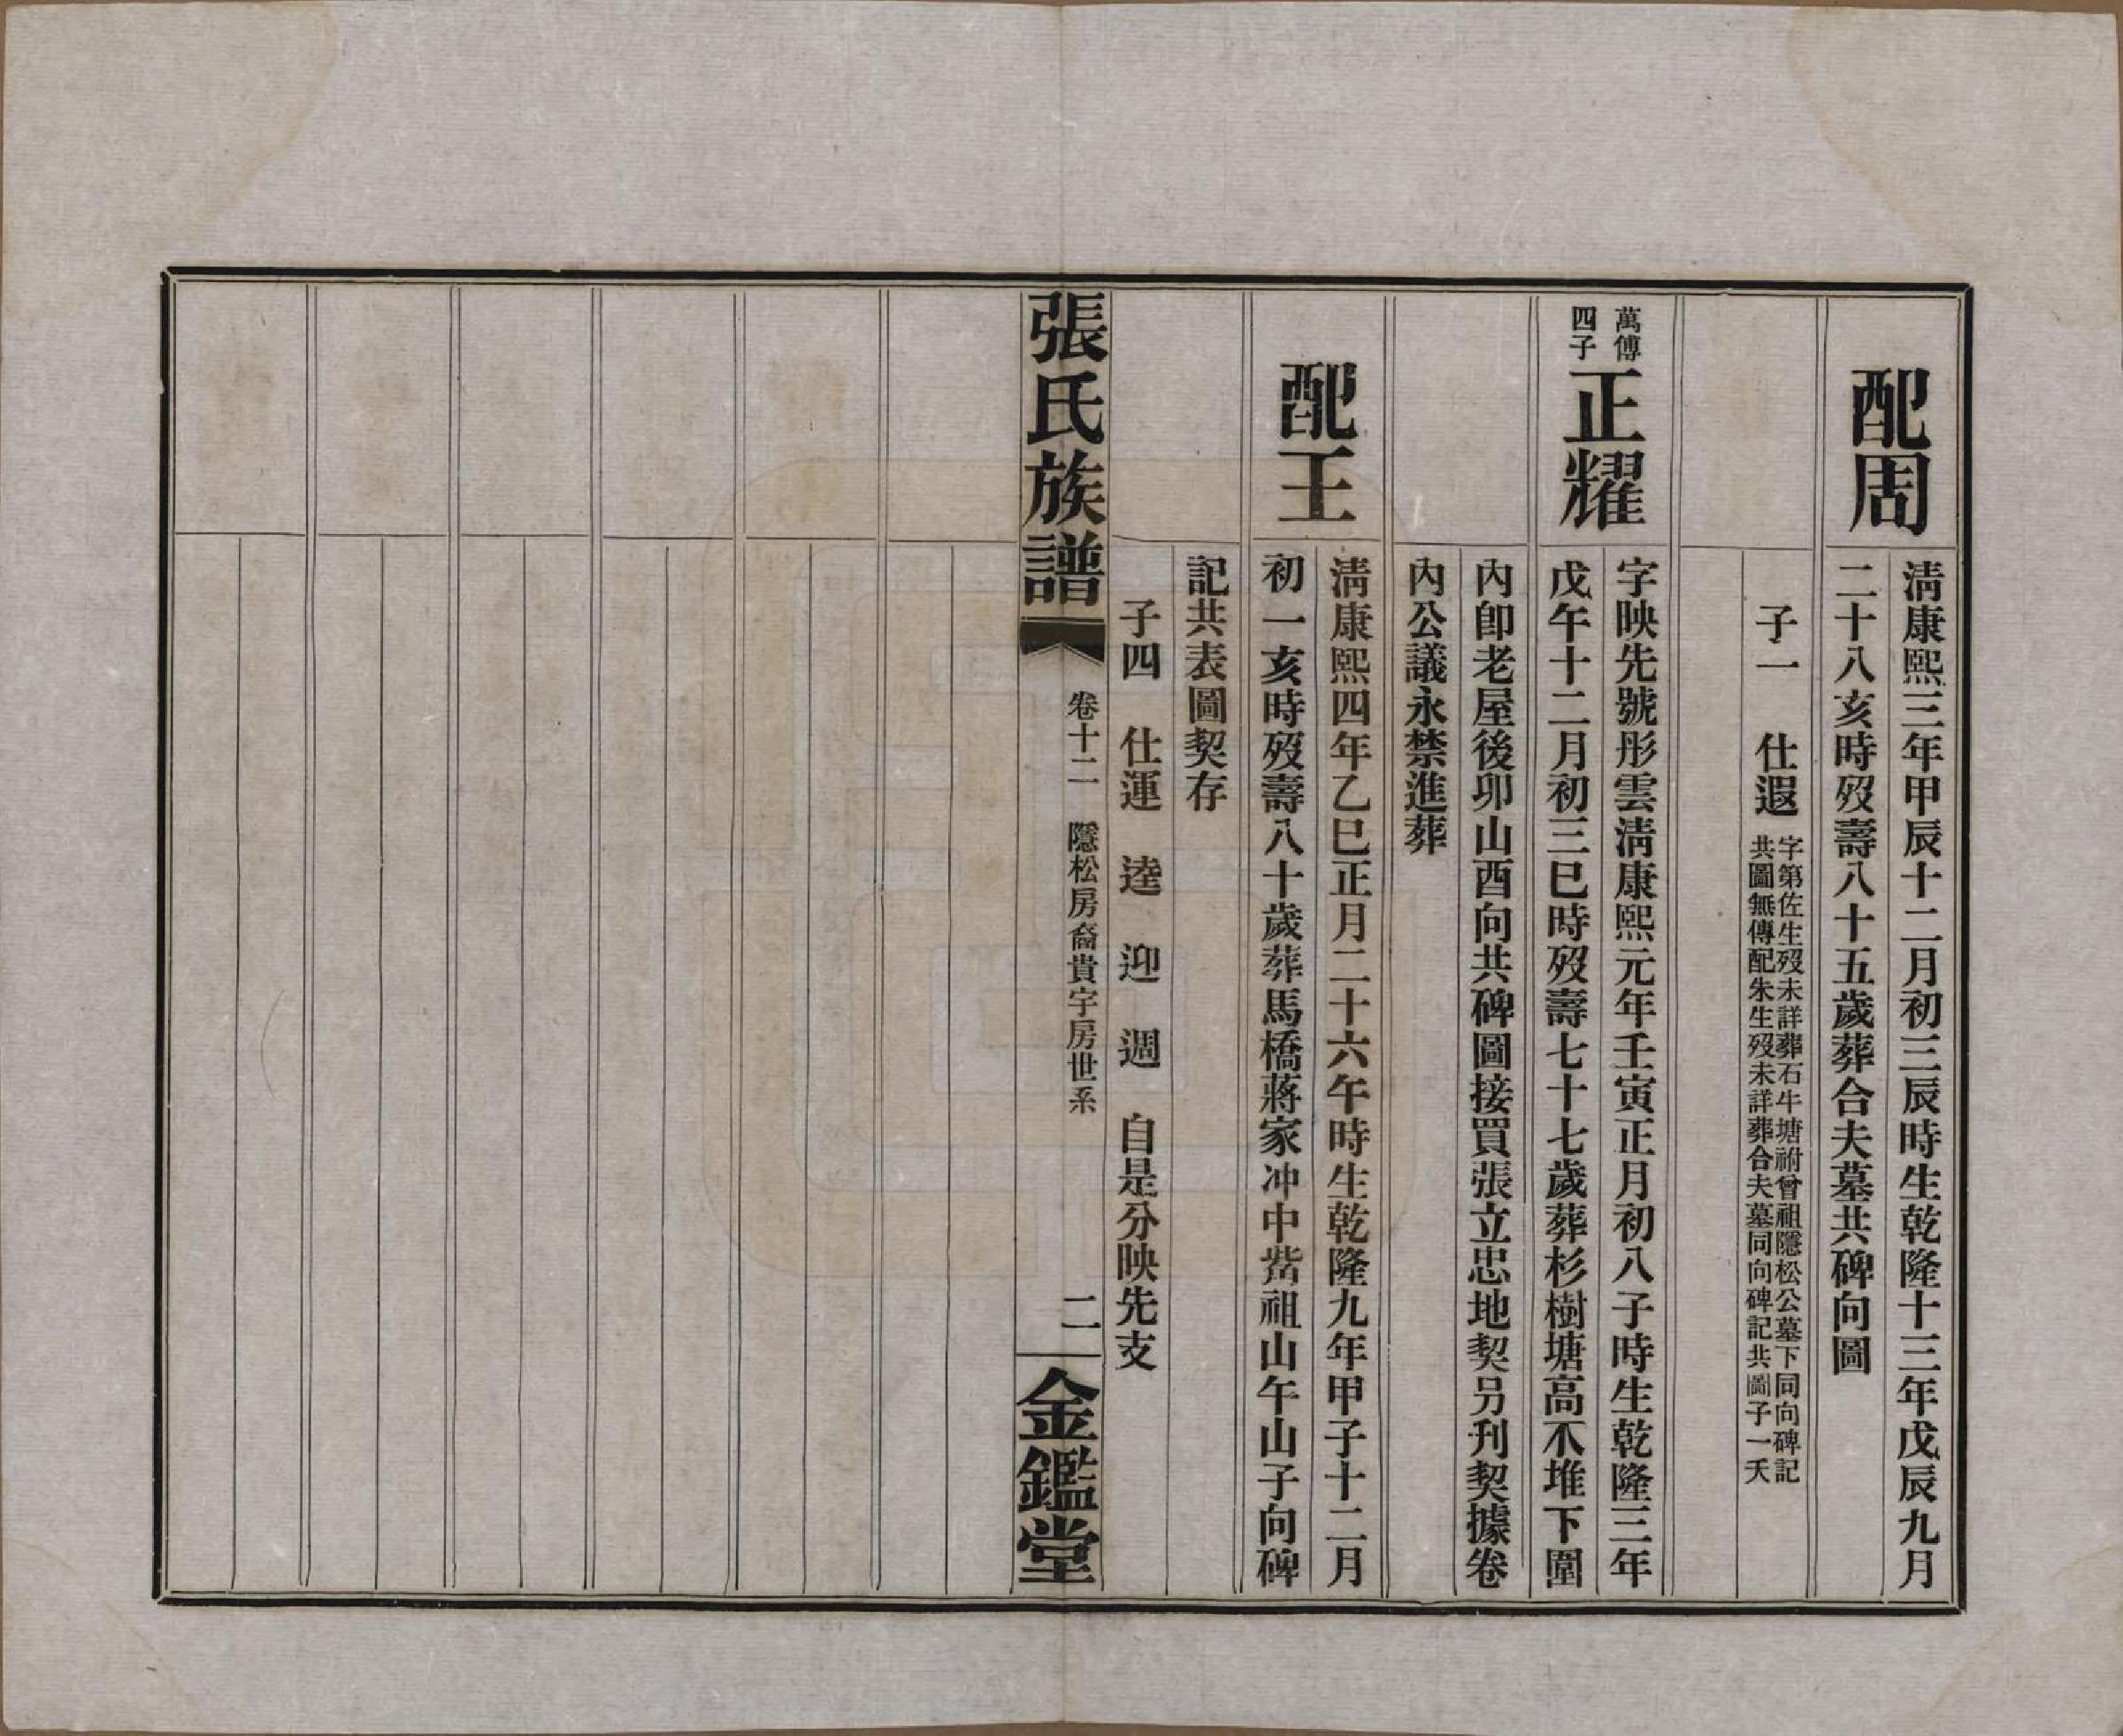 配周
清康熙三年甲辰十二月初三辰時生乾隆十三年戊辰九月
二十八亥時歿壽八十五歲葬合夫墓共碑向圖
子一　仕遐
字第佐生歿未詳葬石牛塘祔曾祖隱松公墓下同向碑記
共圖無傳配朱生歿未詳葬合夫墓同向碑記共圖子一夭
萬傅
四子
正耀
字映先號彤雲清康熙元年壬寅正月初八子時生乾隆三年
戊午十二月初三巳時歿壽七十七歲葬杉樹塘高不堆下圍
內卽老屋後卯山酉向共碑圖接買張立忠地契另刋契據卷
內公議永禁進葬
配王
清康熙四年乙巳正月二十六午時生乾隆九年甲子十二月
初一亥時歿壽八十歲葬馬橋蔣家冲中嵴祖山午山子向碑
記共表圖契存
子四　仕運　逵　迎　週　自是分映先支
張氏族譜
卷十二　隱松房裔貴宇房世系
二
金鑑堂